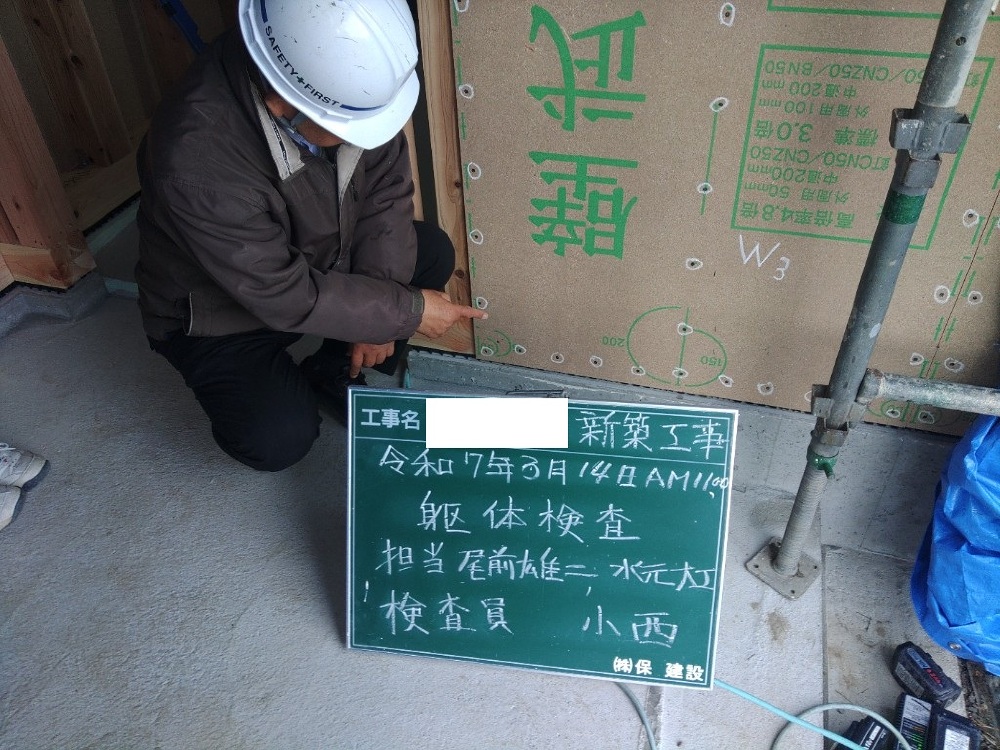 SAFETY+FIRST
壁武
釘CN50/CNZ50/BN50
外周用 100mm
中通 200mm
標準 3.0倍
釘CN50/CNZ50
外周用 50mm
中通200mm
高倍率4.8倍
W3
200
150
工事名 新築工事
令和7年3月14日AM11:00
躯体検査
担当 尾前雄二, 水元大工
検査員 小西
㈱保 建設